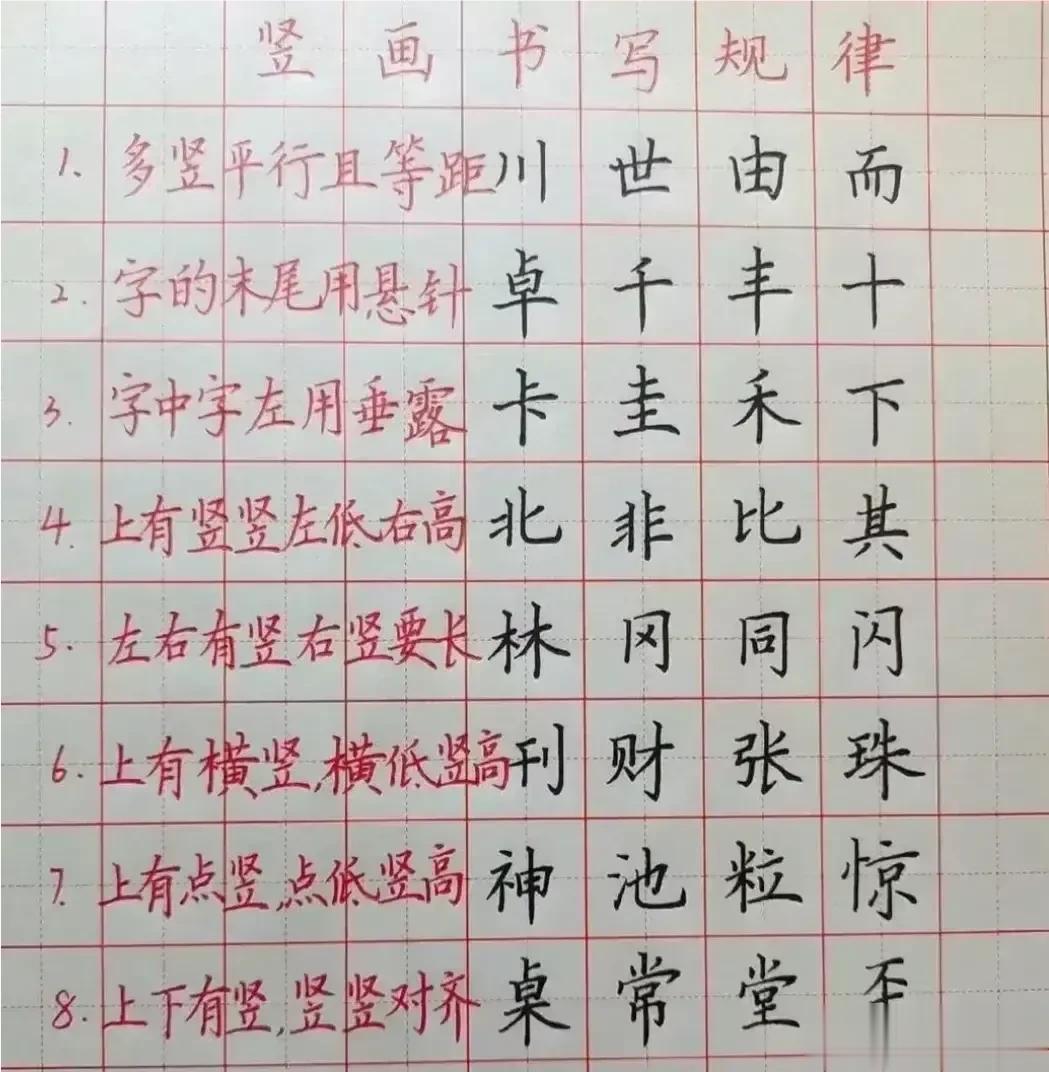 竖画书写规律
1. 多竖平行且等距 川世由而
2. 字的末尾用悬针 卓千丰十
3. 字中字左用垂露 卡圭禾下
4. 上有竖竖左低右高 北非比其
5. 左右有竖右竖要长 林冈同闪
6. 上有横竖,横低竖高 刊财张珠
7. 上有点竖,点低竖高 神池粒惊
8. 上下有竖,竖竖对齐 桌常堂